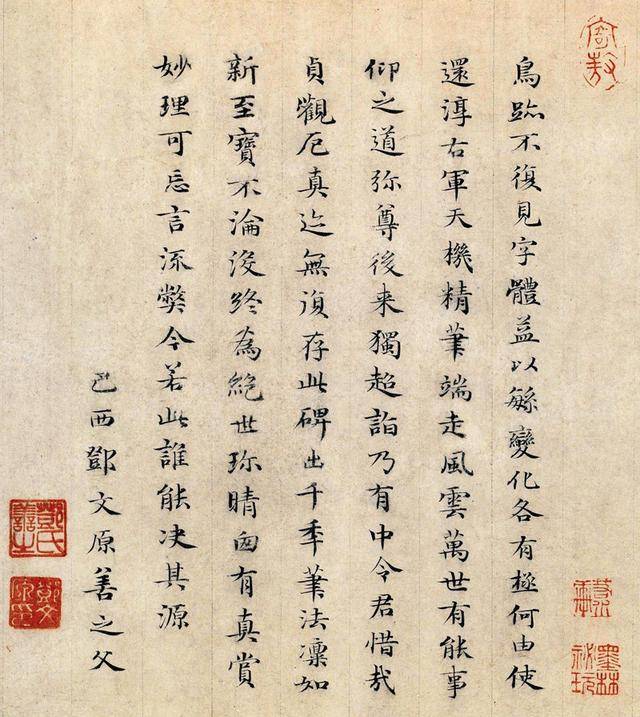 鳥跡不復見字體益以緐變化各有極何由使
還淳右軍天機精筆端走風雲萬世有能事
仰之道弥尊後来獨超詣乃有中令君惜哉
貞觀后真迹無復存此碑出千年筆法凜如
新至寶不淪没終為絕世珎晴囪有真賞
妙理可忘言流弊今若此誰能决其源
己酉鄧文原善之父
墨林祕玩
鄧氏善之
鄧文原印